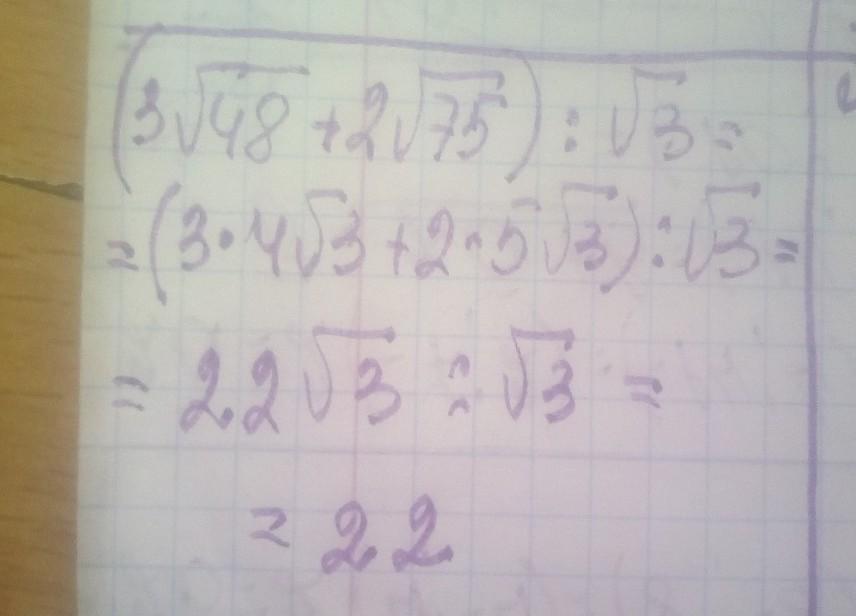 (3√48 + 2√75) : √3 =
= (3·4√3 + 2·5√3) : √3 =
= 22√3 : √3 =
= 22